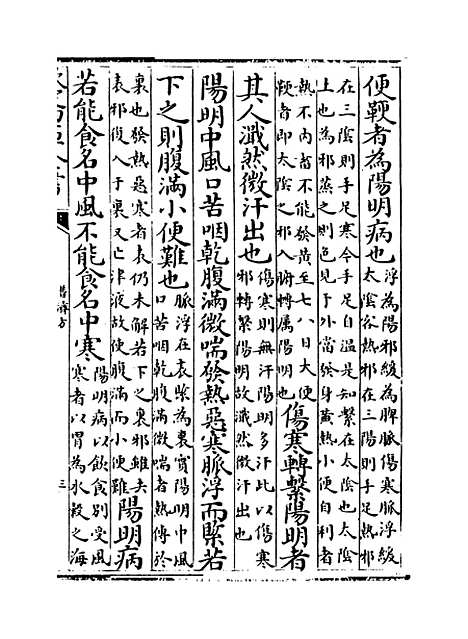 便鞕者為陽明病也
浮為陽邪緩為脾脈傷寒脈浮緩
太陰客熱邪在三陽則手足熱邪
在三陰則手足寒今手足自温是知繫在太陰也太陰
土也為邪蒸之則色見于外當發身黄熱小便自利者
熱不内畜不能發黄至七八日大便
鞕者即太陰之邪入腑轉屬陽明也
傷寒轉繫陽明者
其人濈然微汗出也
傷寒則無汗陽明多汗此以傷寒
邪轉繫陽明故濈然微汗出也
陽明中風口苦咽乾腹滿微喘發熱惡寒脈浮而緊若
下之則腹滿小便難也
脈浮在表緊為裏實陽明中風
口苦咽乾腹滿微喘者熱傳於
裏也發熱惡寒者表仍未解若下之裏邪雖去
表邪復入于裏又亡津液故使腹滿而小便難
陽明病
若能食名中風不能食名中寒
陽明病以飲食別受風
寒者以胃為水穀之海
普濟方
三